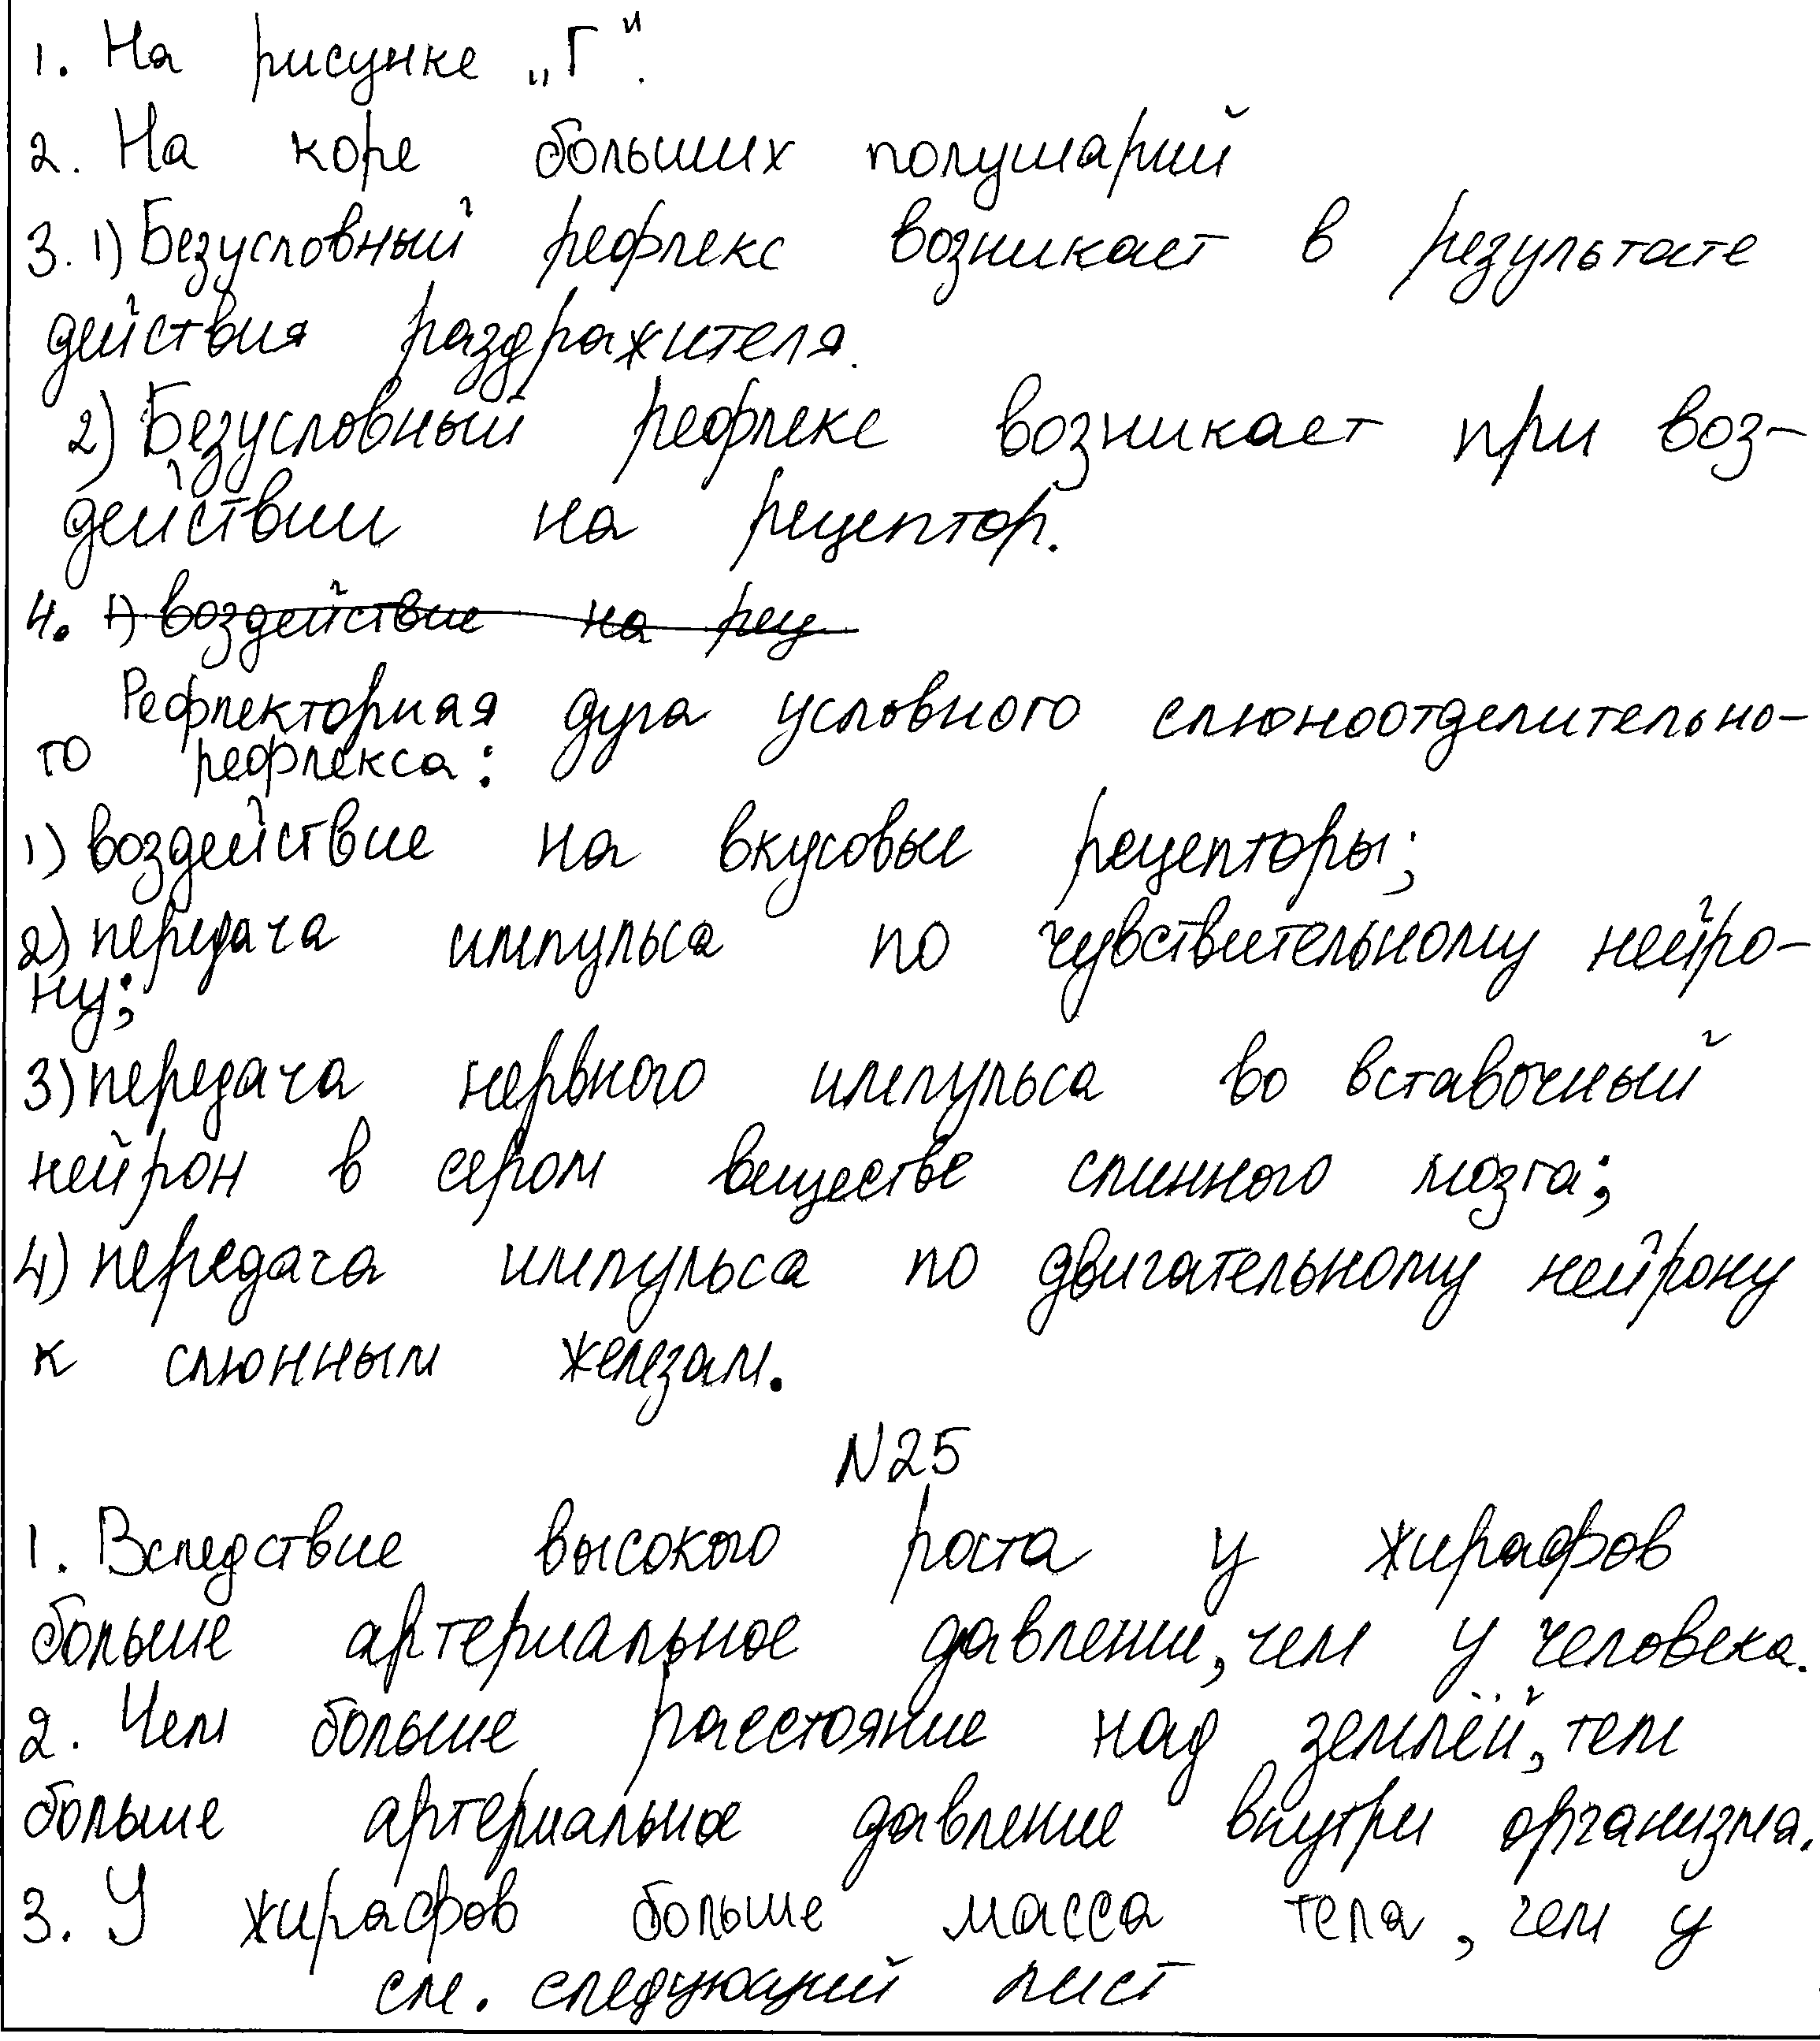 1. На рисунке „Г".
2. На коре больших полушарий
3. 1) Безусловный рефлекс возникает в результате
действия раздражителя.
2) Безусловный рефлекс возникает при воз-
действии на рецептор.
4. 1) воздействие на рец
Рефлекторная дуга условного слюноотделительно-
го рефлекса:
1) воздействие на вкусовые рецепторы;
2) передача импульса по чувствительному нейро-
ну;
3) передача нервного импульса во вставочный
нейрон в сером веществе спинного мозга;
4) передача импульса по двигательному нейрону
к слюнным железам.
N25
1. Вследствие высокого роста у жирафов
больше артериальное давление, чем у человека.
2. Чем больше расстояние над землёй, тем
больше артериальное давление внутри организма.
3. У жирафов больше масса тела, чем у
см. следующий лист